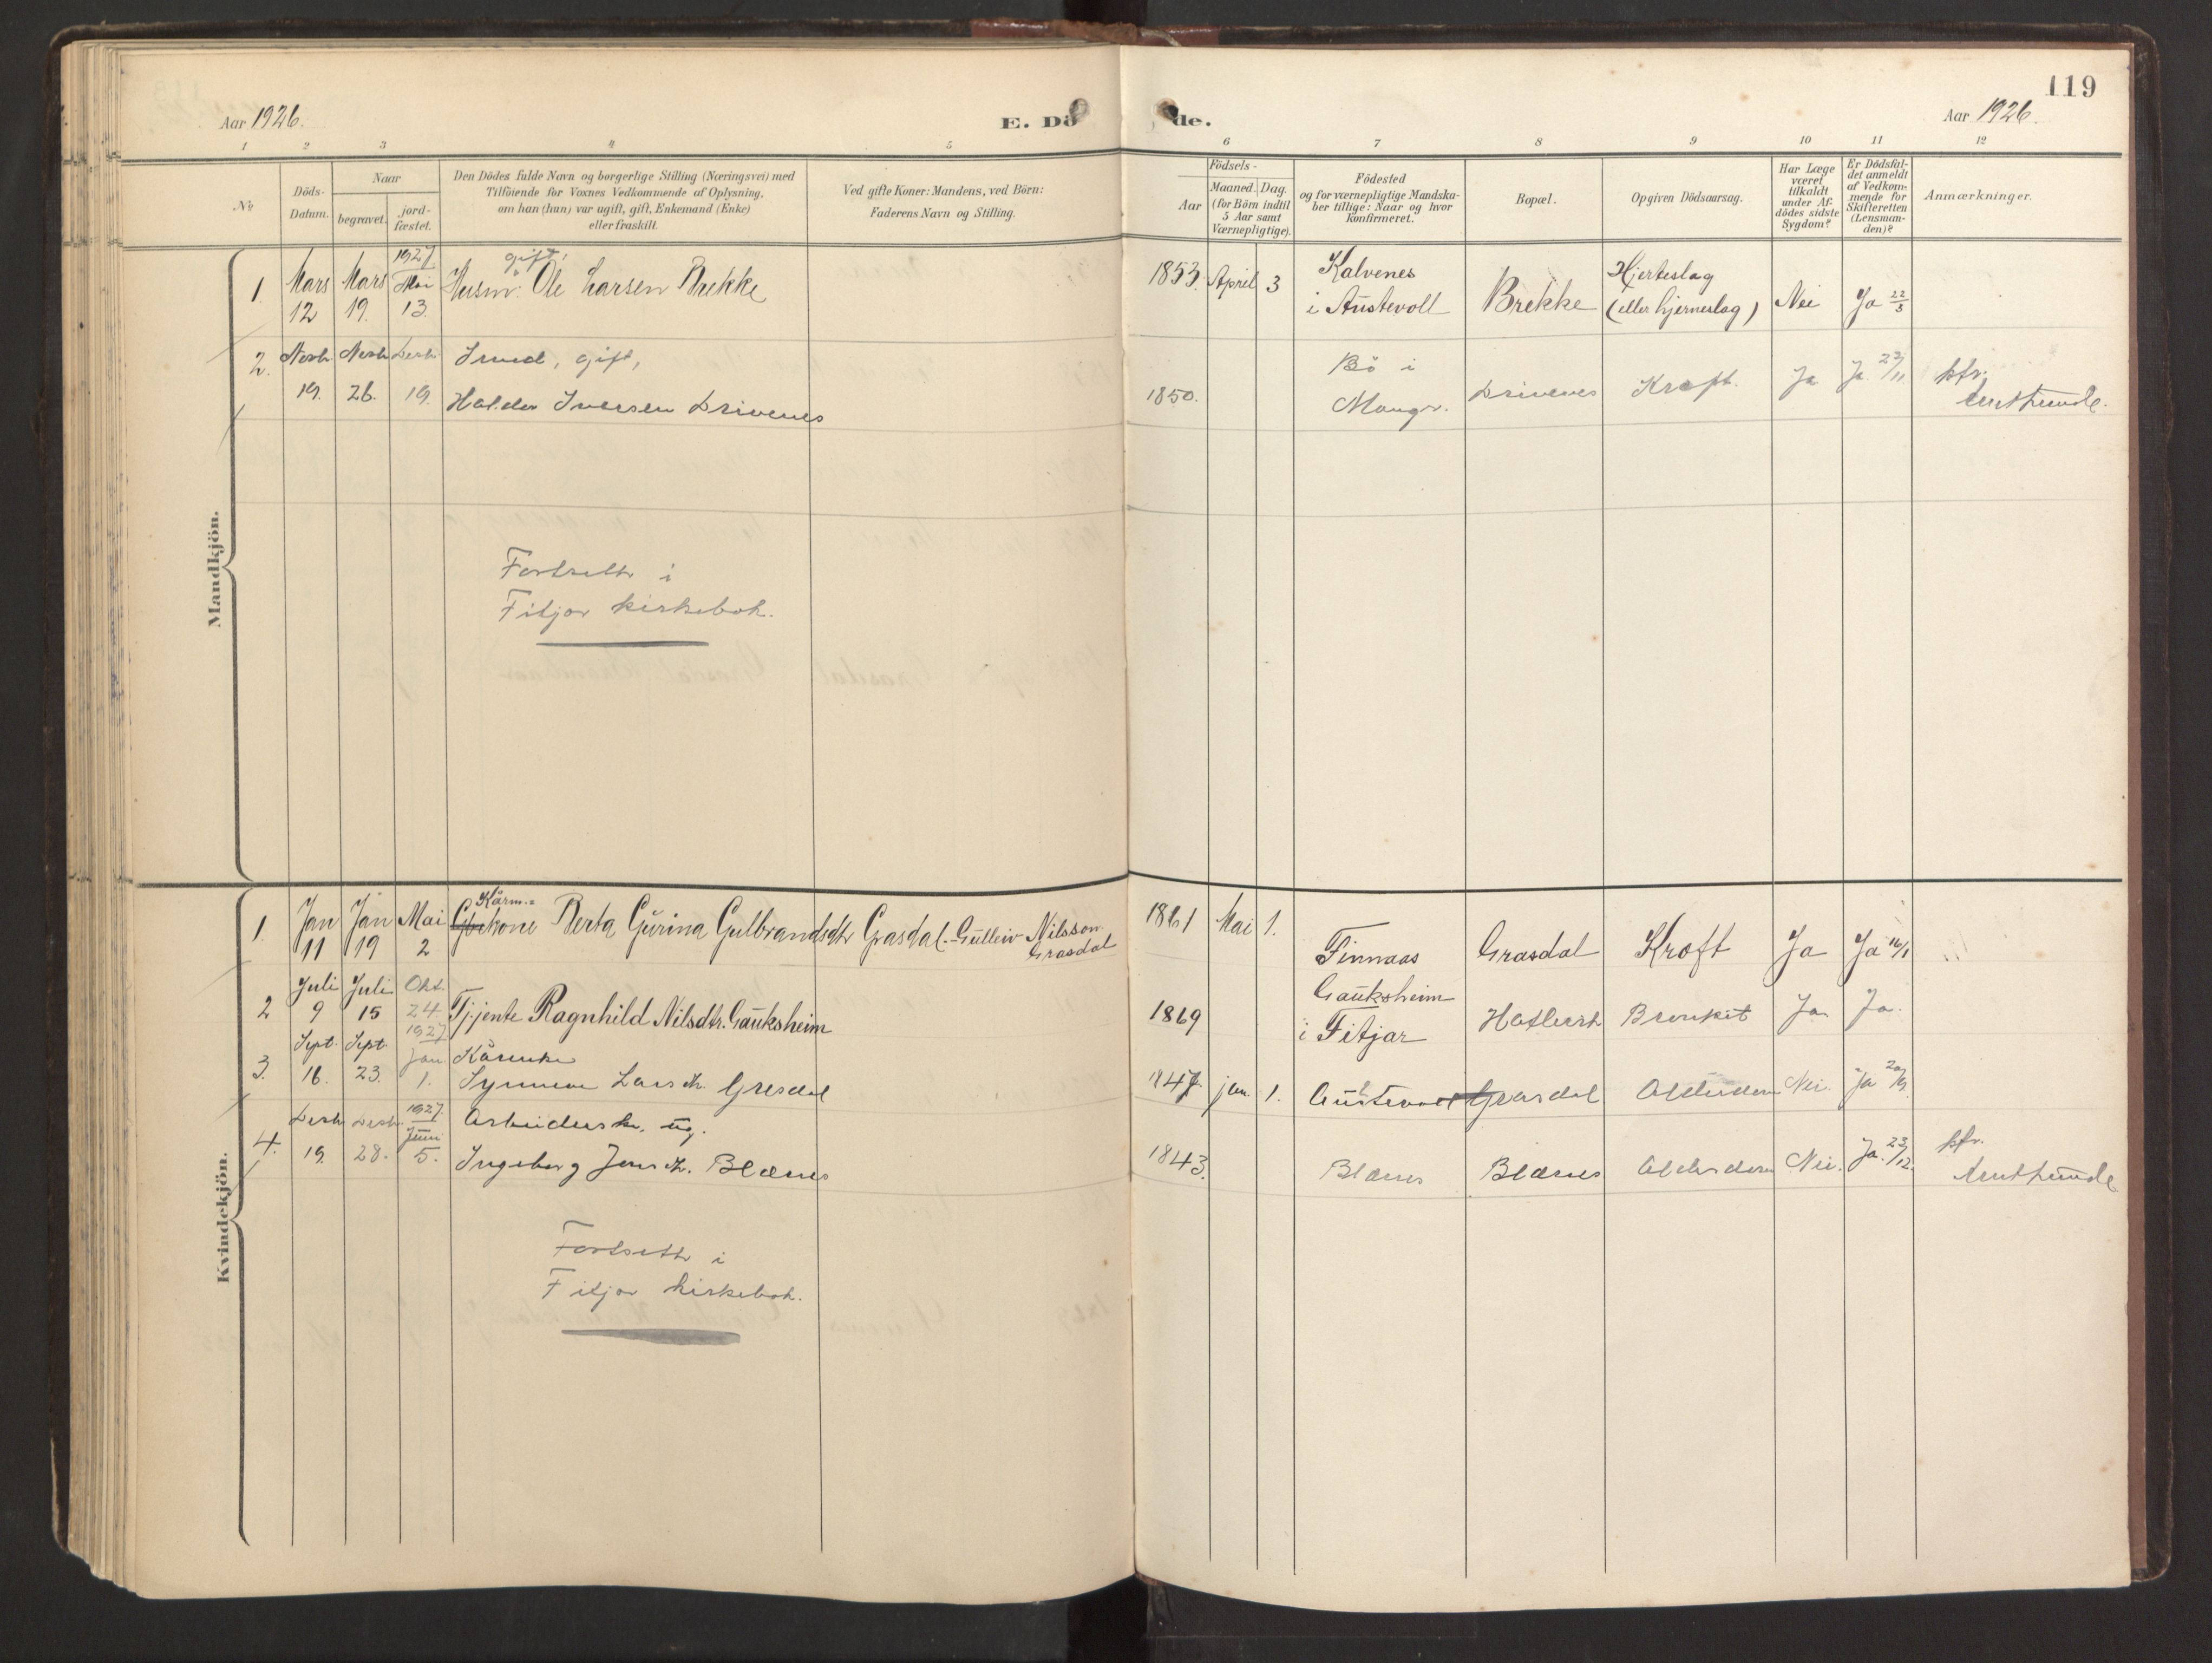 119
Aar 1926.
E. Dö
de.
Aar 1926.
1 2 3 4 5 6 7 8 9 10 11 12
№
Döds-
Datum.
Naar
begravet.
jord-
fæstet.
Den Dödes fulde Navn og borgerlige Stilling (Næringsvei) med
Tilföiende for Voxnes Vedkommende af Oplysning,
om han (hun) var ugift, gift, Enkemand (Enke)
eller fraskilt.
Ved gifte Koner: Mandens, ved Börn:
Faderens Navn og Stilling.
Födsels-
Aar
Maaned. Dag.
(for Börn indtil
5 Aar samt
Værnepligtige).
Födested
og for værnepligtige Mandska-
ber tillige: Naar og hvor
Konfirmeret.
Bopæl.
Opgiven Dödsaarsag.
Har Læge
været
tilkaldt
under Af-
dödes sidste
Sygdom?
Er Dödsfal-
det anmeldt
af Vedkom-
mende for
Skifteretten
(Lensman-
den)?
Anmærkninger.
Mandkjön.
1927
gift
1 Mars Mars Mai Husm: Ole Larsen Brekke
12 19. 13.
1853. April 3 Kalvenes
i Austevoll
Brekke
Hjerteslag
(eller hjerneslag)
Nei Ja 22/3
2. Novbr Novbr Desbr. gift,
19. 26. 19. Haldor Iversen Drivenes
1850. Bö i
Mangr.
Drivenes Kreft. Ja Ja 23/11 kfr.
Fortsettr i
Fitjar kirkebok.
Kvindekjön.
Kårm.=
1. Jan Jan Mai Gbrkone Berta Gurina Gulbrandsdtr Grasdal. Gulleiv Nilsson
11 19 2 Grasdal
1861 Mai 1. Finnaas Grasdal Kræft Ja Ja 16/1
Juli Juli Okt.
2 9 15 24. Tj.jente Ragnhild Nilsdtr. Gauksheim
1869 Gauksheim
i Fitjar
Ja Ja.
Sept. Sept. 1927
3. jan. Kårenke
16. 23. 1. Synneva Larsdtr. Grasdal
1847. jan. 1. Austevoll Grasdal Alderdom Nei. Ja 20/9.
Desbr Desbr. 1927. Arbeiderske, ug.
4. Juni
19. 28. 5. Ingeborg Jensdtr. Blænes
1843. Blænes Blænes Alderdom Nei. Ja. 23/12. kfr.
Fortsettr i
Fitjar kirkebok.